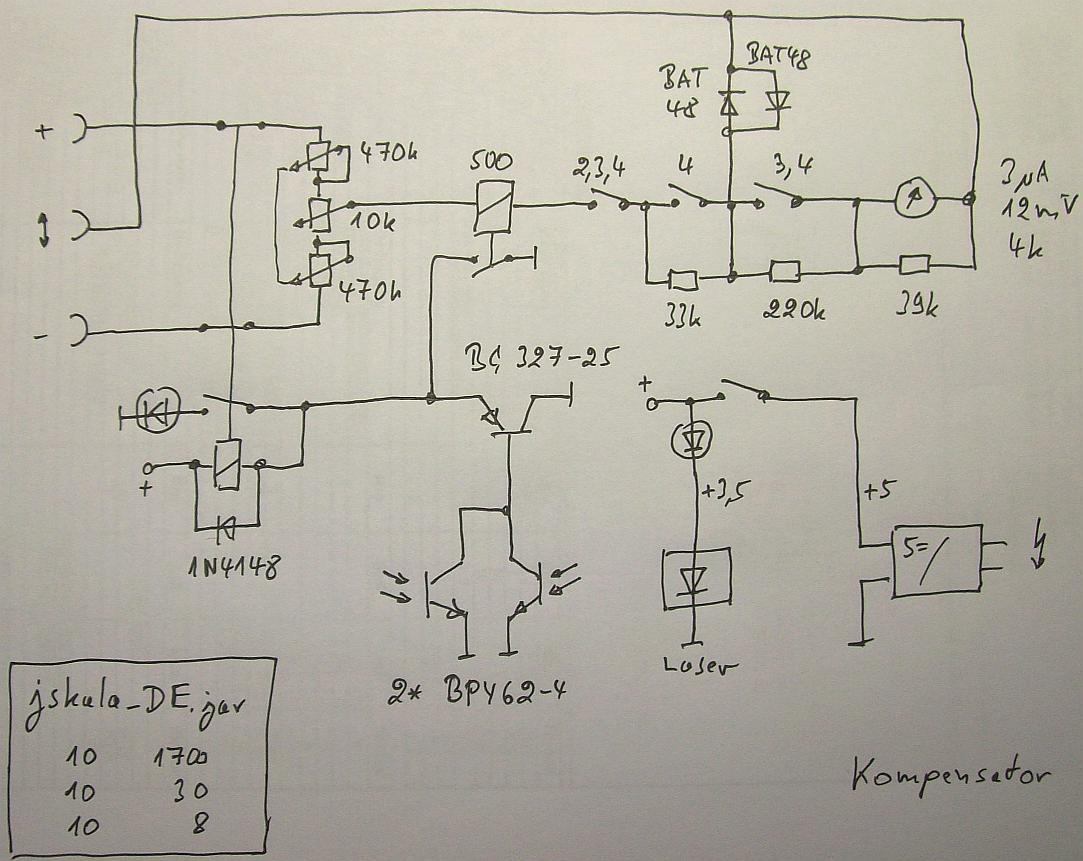 BAT48
BAT
48
+
470k
500
2,3,4
4
3,4
3µA
12mV
4k
10k
470k
33k
220k
39k
-
BC 327-25
+
+
+3,5
+5
5=/
1N4148
Laser
2* BPY62-4
jskala_DE.jar
10 1700
10 30
10 8
Kompensator